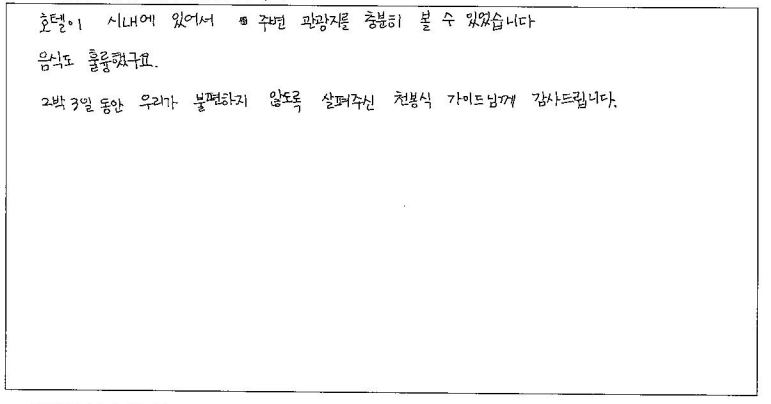 호텔이 시내에 있어서 주변 관광지를 충분히 볼 수 있었습니다
음식도 훌륭했구요.
2박 3일 동안 우리가 불편하지 않도록 살펴주신 천봉식 가이드님께 감사드립니다.